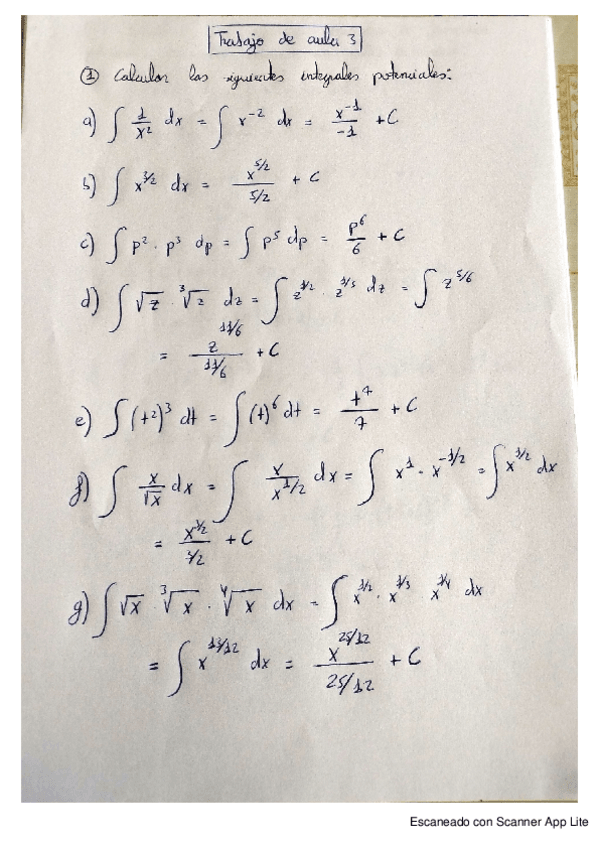 Trabajo de aula 3
① Calcular las siguientes integrales potenciales:
a) ∫ 1/x² dx = ∫ x⁻² dx = x⁻¹/-1 + C
b) ∫ x^3/2 dx = x^5/2 / 5/2 + C
c) ∫ p² · p³ dp = ∫ p⁵ dp = p⁶/6 + C
d) ∫ √z · ³√z dz = ∫ z^1/2 · z^1/3 dz = ∫ z^5/6
= z^11/6 / 11/6 + C
e) ∫ (t²)³ dt = ∫ (t)⁶ dt = t⁷/7 + C
f) ∫ x/√x dx = ∫ x/x^1/2 dx = ∫ x¹ · x^-1/2 = ∫ x^1/2 dx
= x^3/2 / 3/2 + C
g) ∫ √x ³√x · ⁴√x dx = ∫ x^1/2 · x^1/3 x^1/4 dx
= ∫ x^13/12 dx = x^25/12 / 25/12 + C
Escaneado con Scanner App Lite